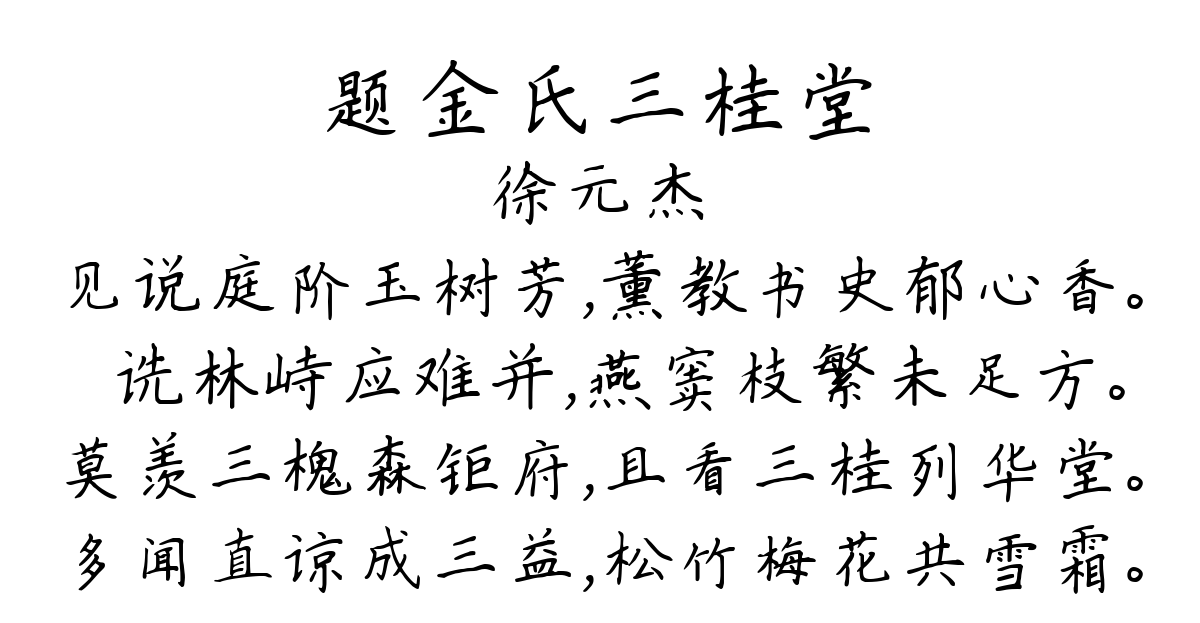 题金氏三桂堂
徐元杰
见说庭阶玉树芳,薰教书史郁心香。
诜林峙应难并,燕窦枝繁未足方。
莫羡三槐森钜府,且看三桂列华堂。
多闻直谅成三益,松竹梅花共雪霜。